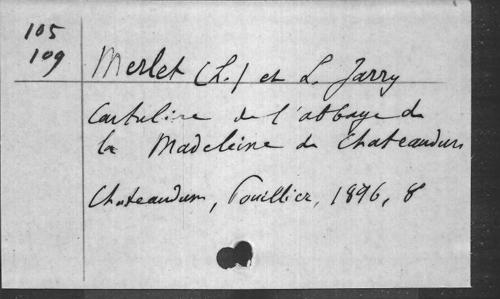 105
109
Merlet (L.) et L. Jarry
Cartulaire de l'abbaye de
la Madeleine de Chateaudun
Chateaudun, Pouillier, 1896, 8